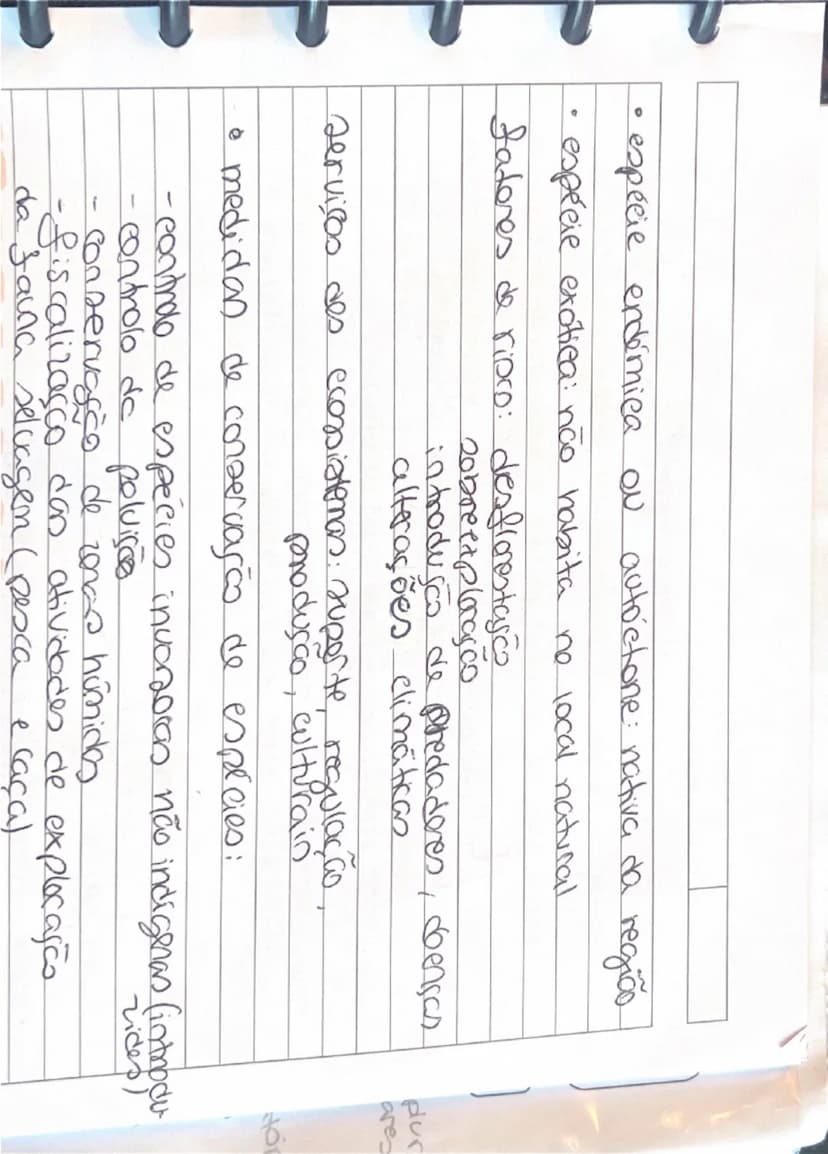 • espécie endémica ou autóctone: nativa da região
• espécie exótica: não habita no local natural
fatores de risco: desflorestação
sobreexploração
introdução de predadores, doenças
alterações climáticas
serviços dos ecossistemas: suporte, regulação,
produção, culturais
• medidas de conservação de espécies:
- controlo de espécies invasoras não indígenas (introdu
zidas)
- controlo da poluição
- conservação de zonas húmidas
- fiscalização das atividades de exploração
da fauna selvagem (pesca e caça)
plur
ares